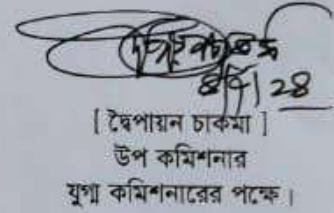 [ দ্বৈপায়ন চাকমা ]
উপ কমিশনার
যুগ্ম কমিশনারের পক্ষে।